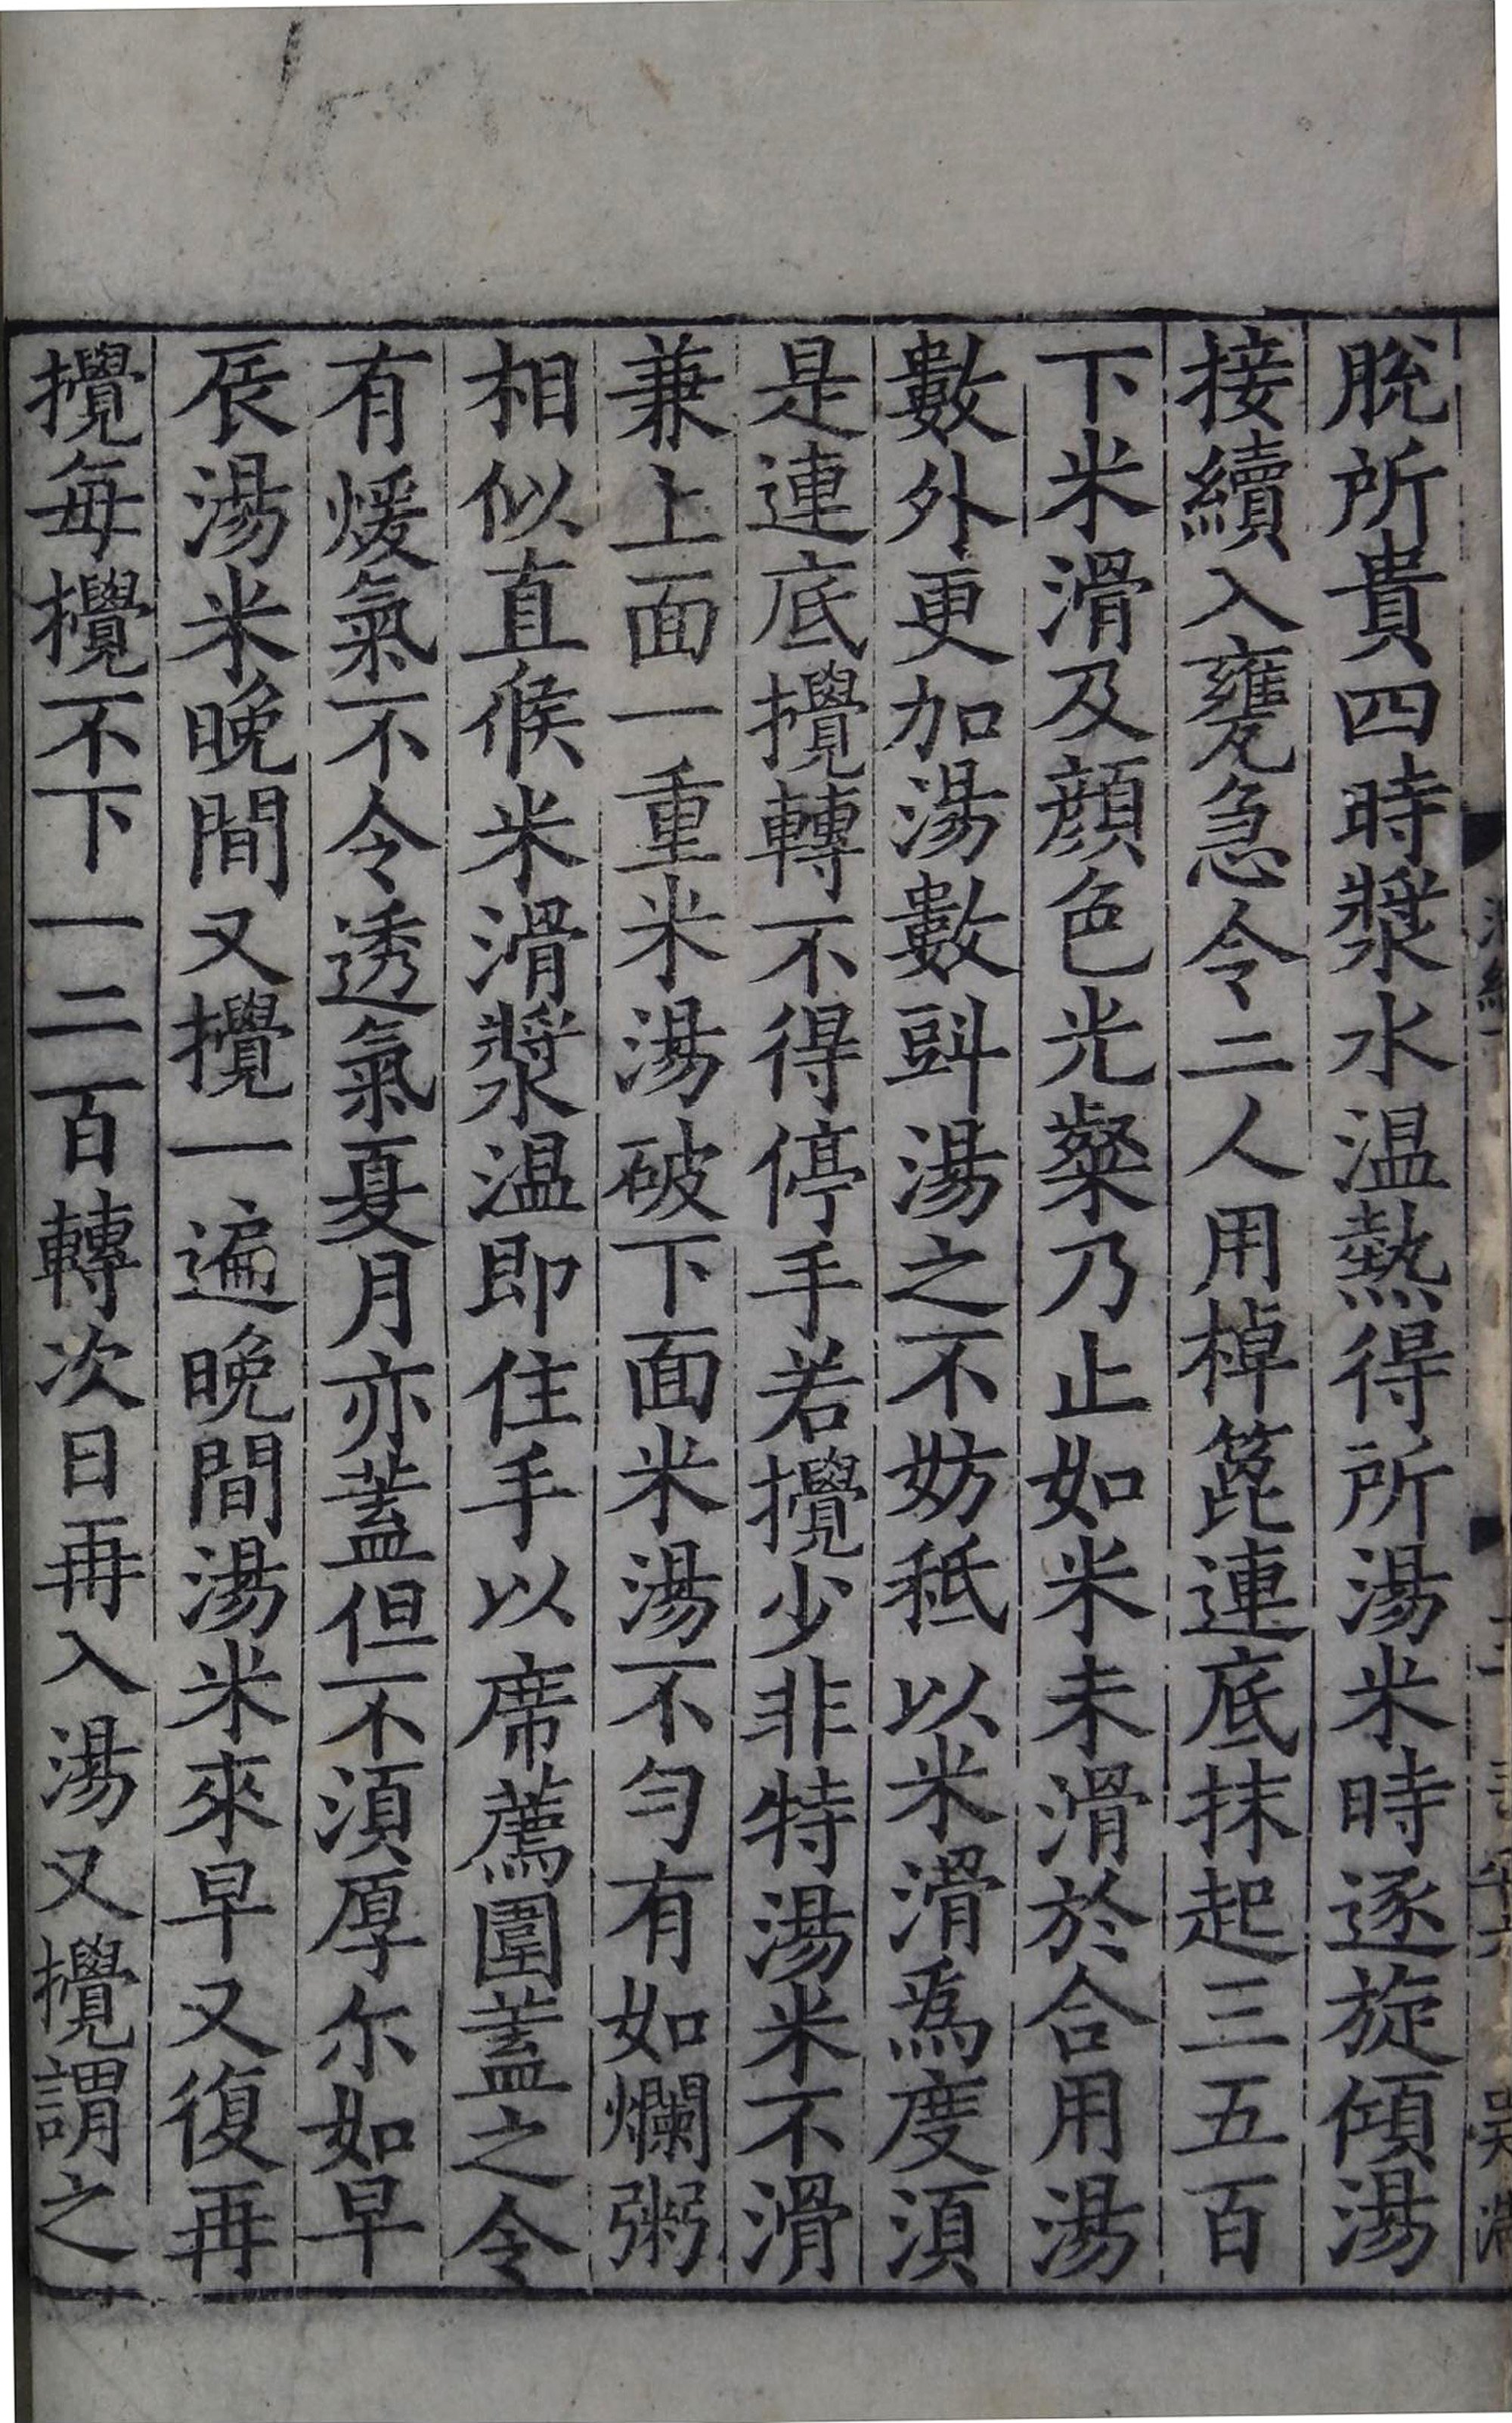 脫所貴四時漿水温熱得所湯米時逐旋傾湯
接續入甕急令二人用棹篦連底抹起三五百
下米滑及顔色光粲乃止如米未滑於合用湯
數外更加湯數㪷湯之不妨秪以米滑爲度須
是連底攪轉不得停手若攪少非特湯米不滑
兼上面一重米湯破下面米湯不勻有如爛粥
相似直候米滑漿温即住手以席薦圍蓋之令
有煖氣不令透氣夏月亦蓋但不須厚尓如早
辰湯米晚間又攪一遍晚間湯米來早又復再
攪每攪不下一二百轉次日再入湯又攪謂之